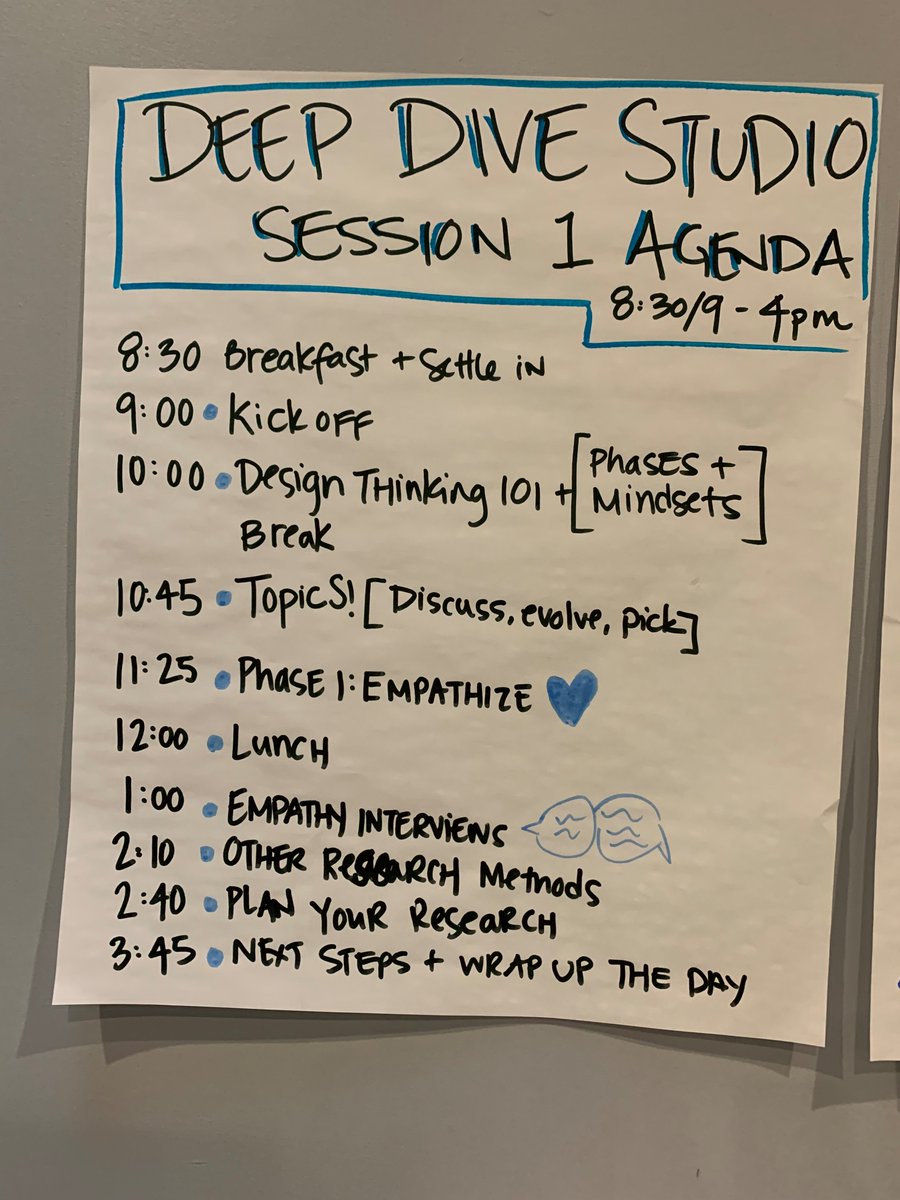 DEEP DIVE STUDIO
SESSION 1 AGENDA
8:30/9 - 4pm
8:30 Breakfast + Settle in
9:00 • Kick off
10:00 • Design Thinking 101 + [Phases + Mindsets]
Break
10:45 • Topics! [Discuss, evolve, pick]
11:25 • Phase 1: EMPATHIZE
12:00 • Lunch
1:00 • EMPATHY INTERVIEWS
2:10 • OTHER ReSeARCH Methods
2:40 • PLAN YOUR ReseARCH
3:45 • NEXT STEPS + WRAP UP THE DAY